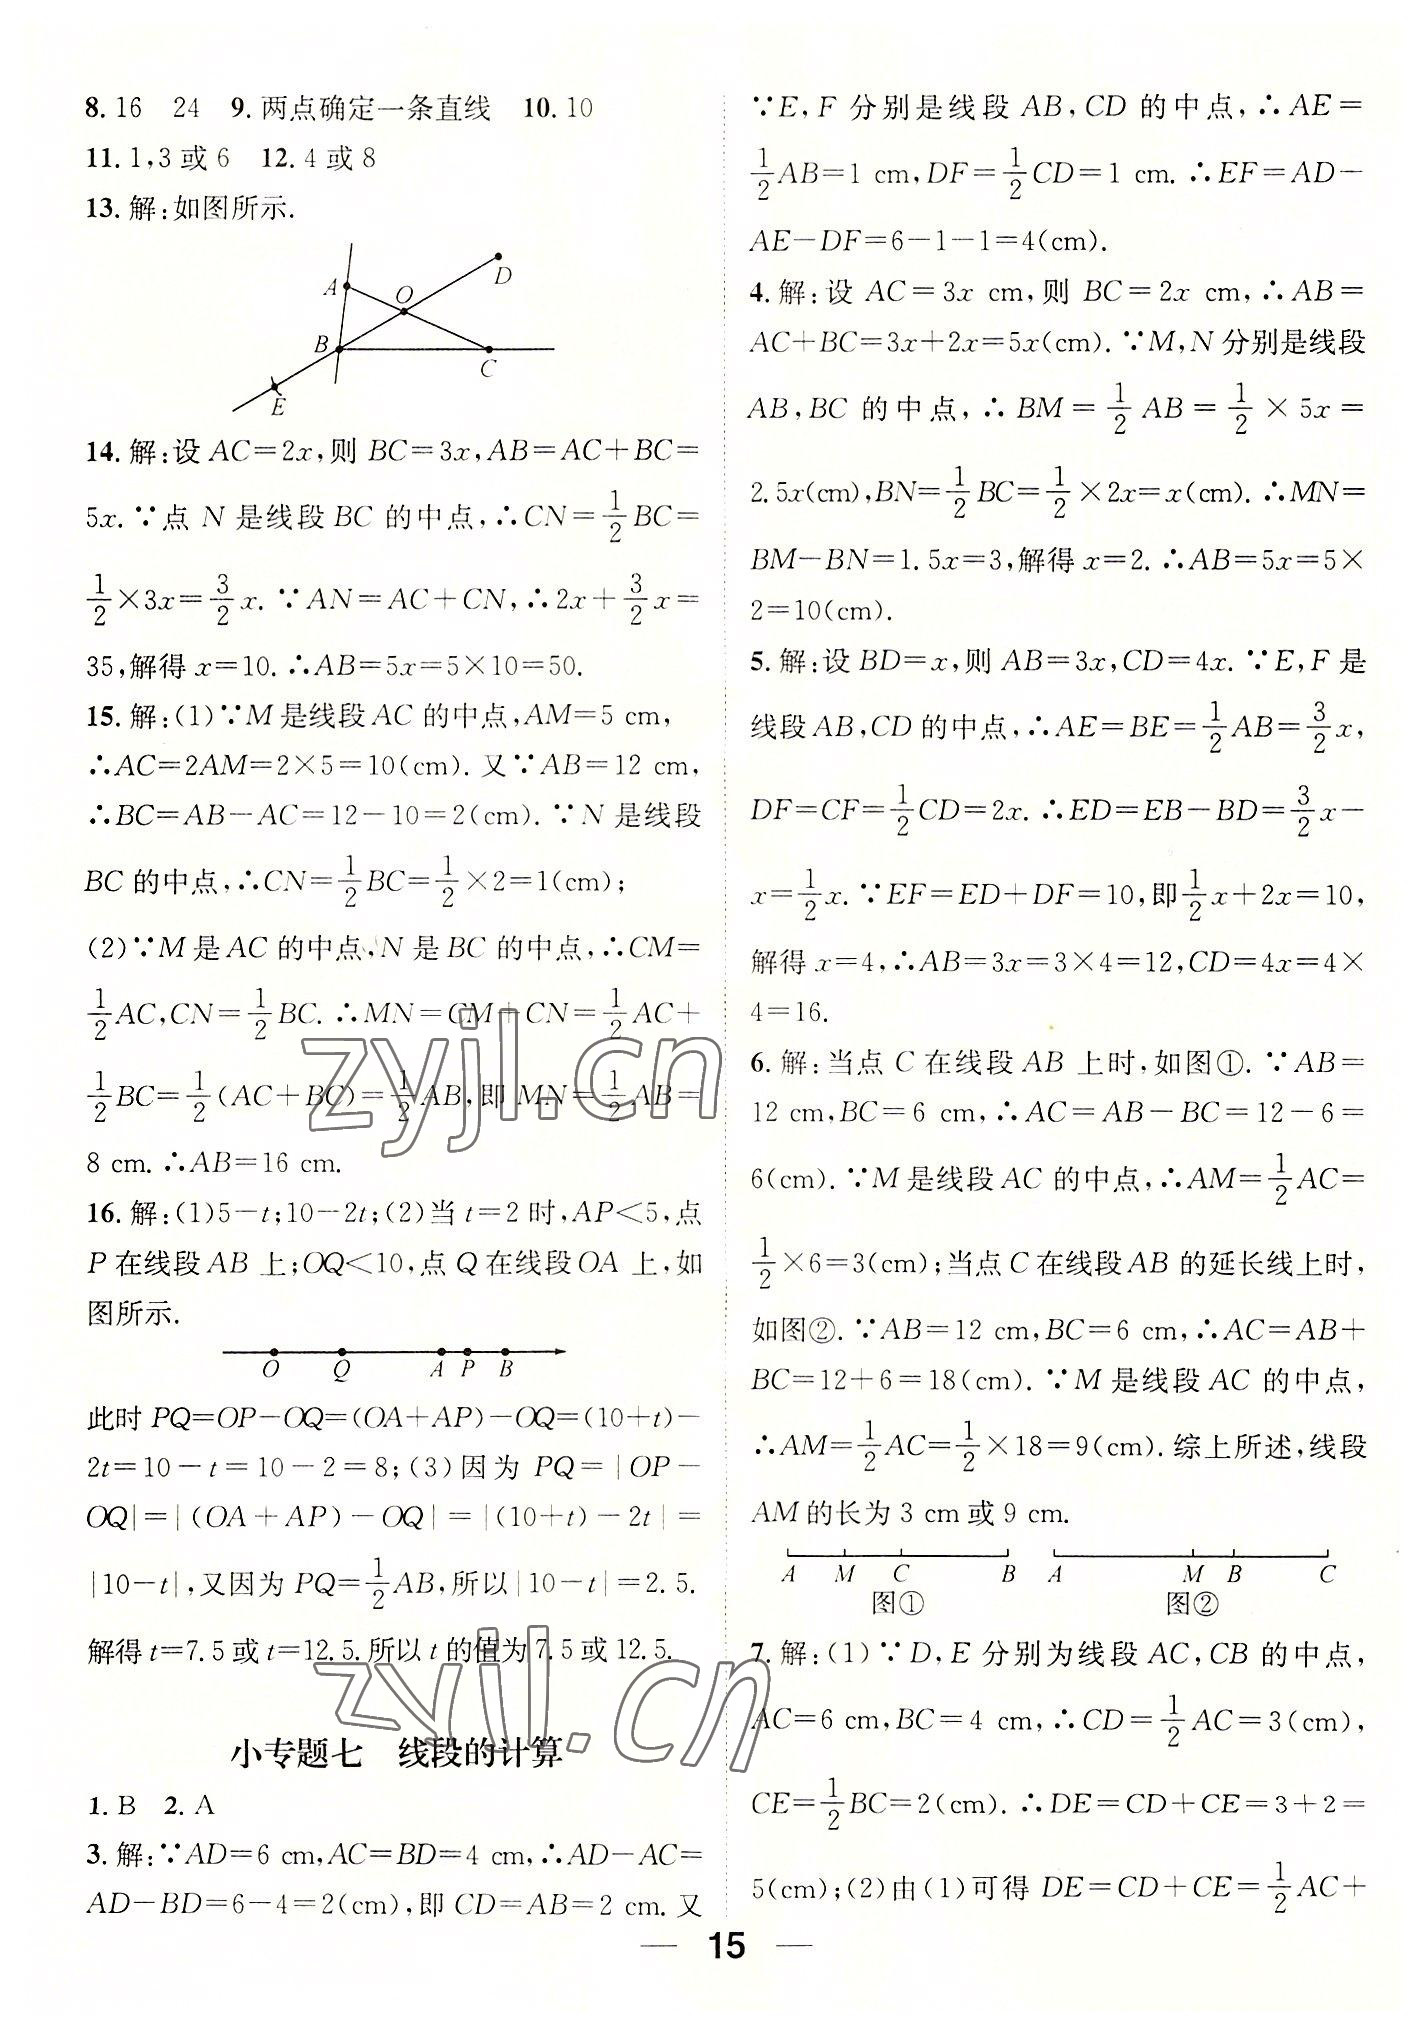 8. 16　24　9. 两点确定一条直线　10. 10
11. 1,3或6　12. 4或8
13. 解:如图所示.
A
O
D
B
C
E
14. 解:设 AC=2x,则 BC=3x,AB=AC+BC=
5x. ∵点 N 是线段 BC 的中点,∴CN=1/2BC=
1/2×3x=3/2x. ∵AN=AC+CN,∴2x+3/2x=
35,解得 x=10. ∴AB=5x=5×10=50.
15. 解:(1)∵M 是线段 AC 的中点,AM=5 cm,
∴AC=2AM=2×5=10(cm). 又∵AB=12 cm,
∴BC=AB-AC=12-10=2(cm). ∵N 是线段
BC 的中点,∴CN=1/2BC=1/2×2=1(cm);
(2)∵M 是 AC 的中点,N 是 BC 的中点,∴CM=
1/2AC,CN=1/2BC. ∴MN=CM+CN=1/2AC+
1/2BC=1/2(AC+BC)=1/2AB,即 MN=1/2AB=
8 cm. ∴AB=16 cm.
16. 解:(1)5-t;10-2t;(2)当 t=2 时,AP<5,点
P 在线段 AB 上;OQ<10,点 Q 在线段 OA 上,如
图所示.
O Q A P B
此时 PQ=OP-OQ=(OA+AP)-OQ=(10+t)-
2t=10-t=10-2=8;(3)因为 PQ=|OP-
OQ|=|(OA+AP)-OQ|=|(10+t)-2t|=
|10-t|,又因为 PQ=1/2AB,所以|10-t|=2.5.
解得 t=7.5 或 t=12.5. 所以 t 的值为 7.5 或 12.5.
小专题七　线段的计算
1. B　2. A
3. 解:∵AD=6 cm,AC=BD=4 cm,∴AD-AC=
AD-BD=6-4=2(cm),即 CD=AB=2 cm. 又
∵E,F 分别是线段 AB,CD 的中点,∴AE=
1/2AB=1 cm,DF=1/2CD=1 cm. ∴EF=AD-
AE-DF=6-1-1=4(cm).
4. 解:设 AC=3x cm,则 BC=2x cm,∴AB=
AC+BC=3x+2x=5x(cm). ∵M,N 分别是线段
AB,BC 的中点,∴BM=1/2AB=1/2×5x=
2.5x(cm),BN=1/2BC=1/2×2x=x(cm). ∴MN=
BM-BN=1.5x=3,解得 x=2. ∴AB=5x=5×
2=10(cm).
5. 解:设 BD=x,则 AB=3x,CD=4x. ∵E,F 是
线段 AB,CD 的中点,∴AE=BE=1/2AB=3/2x,
DF=CF=1/2CD=2x. ∴ED=EB-BD=3/2x-
x=1/2x. ∵EF=ED+DF=10,即1/2x+2x=10,
解得 x=4,∴AB=3x=3×4=12,CD=4x=4×
4=16.
6. 解:当点 C 在线段 AB 上时,如图①. ∵AB=
12 cm,BC=6 cm,∴AC=AB-BC=12-6=
6(cm). ∵M 是线段 AC 的中点,∴AM=1/2AC=
1/2×6=3(cm);当点 C 在线段 AB 的延长线上时,
如图②. ∵AB=12 cm,BC=6 cm,∴AC=AB+
BC=12+6=18(cm). ∵M 是线段 AC 的中点,
∴AM=1/2AC=1/2×18=9(cm). 综上所述,线段
AM 的长为 3 cm 或 9 cm.
A M C B　A M B C
图①　图②
7. 解:(1)∵D,E 分别为线段 AC,CB 的中点,
AC=6 cm,BC=4 cm,∴CD=1/2AC=3(cm),
CE=1/2BC=2(cm). ∴DE=CD+CE=3+2=
5(cm);(2)由(1)可得 DE=CD+CE=1/2AC+
— 15 —
zyjl.cn
zyjl.cn